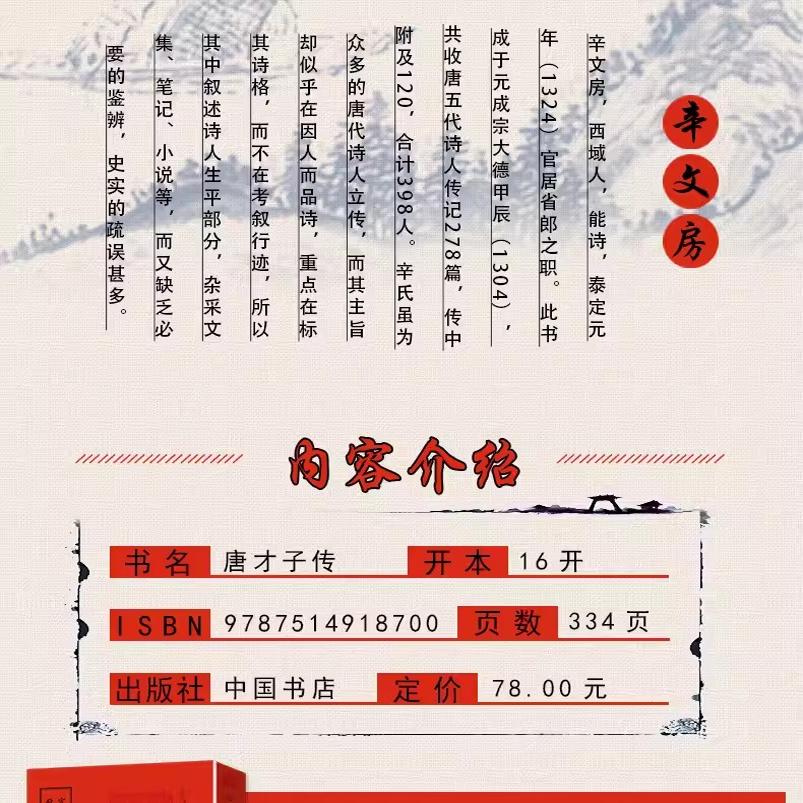 辛文房
辛文房，西域人，能诗，泰定元
年（1324）官居省郎之职。此书
成于元成宗大德甲辰（1304），
共收唐五代诗人传记278篇，传中
附及120，合计398人。辛氏虽为
众多的唐代诗人立传，而其主旨
却似乎在因人而品诗，重点在标
其诗格，而不在考叙行迹，所以
其中叙述诗人生平部分，杂采文
集、笔记、小说等，而又缺乏必
要的鉴辨，史实的疏误甚多。
内容介绍
书名 唐才子传 开本 16开
ISBN 9787514918700 页数 334页
出版社 中国书店 定价 78.00元